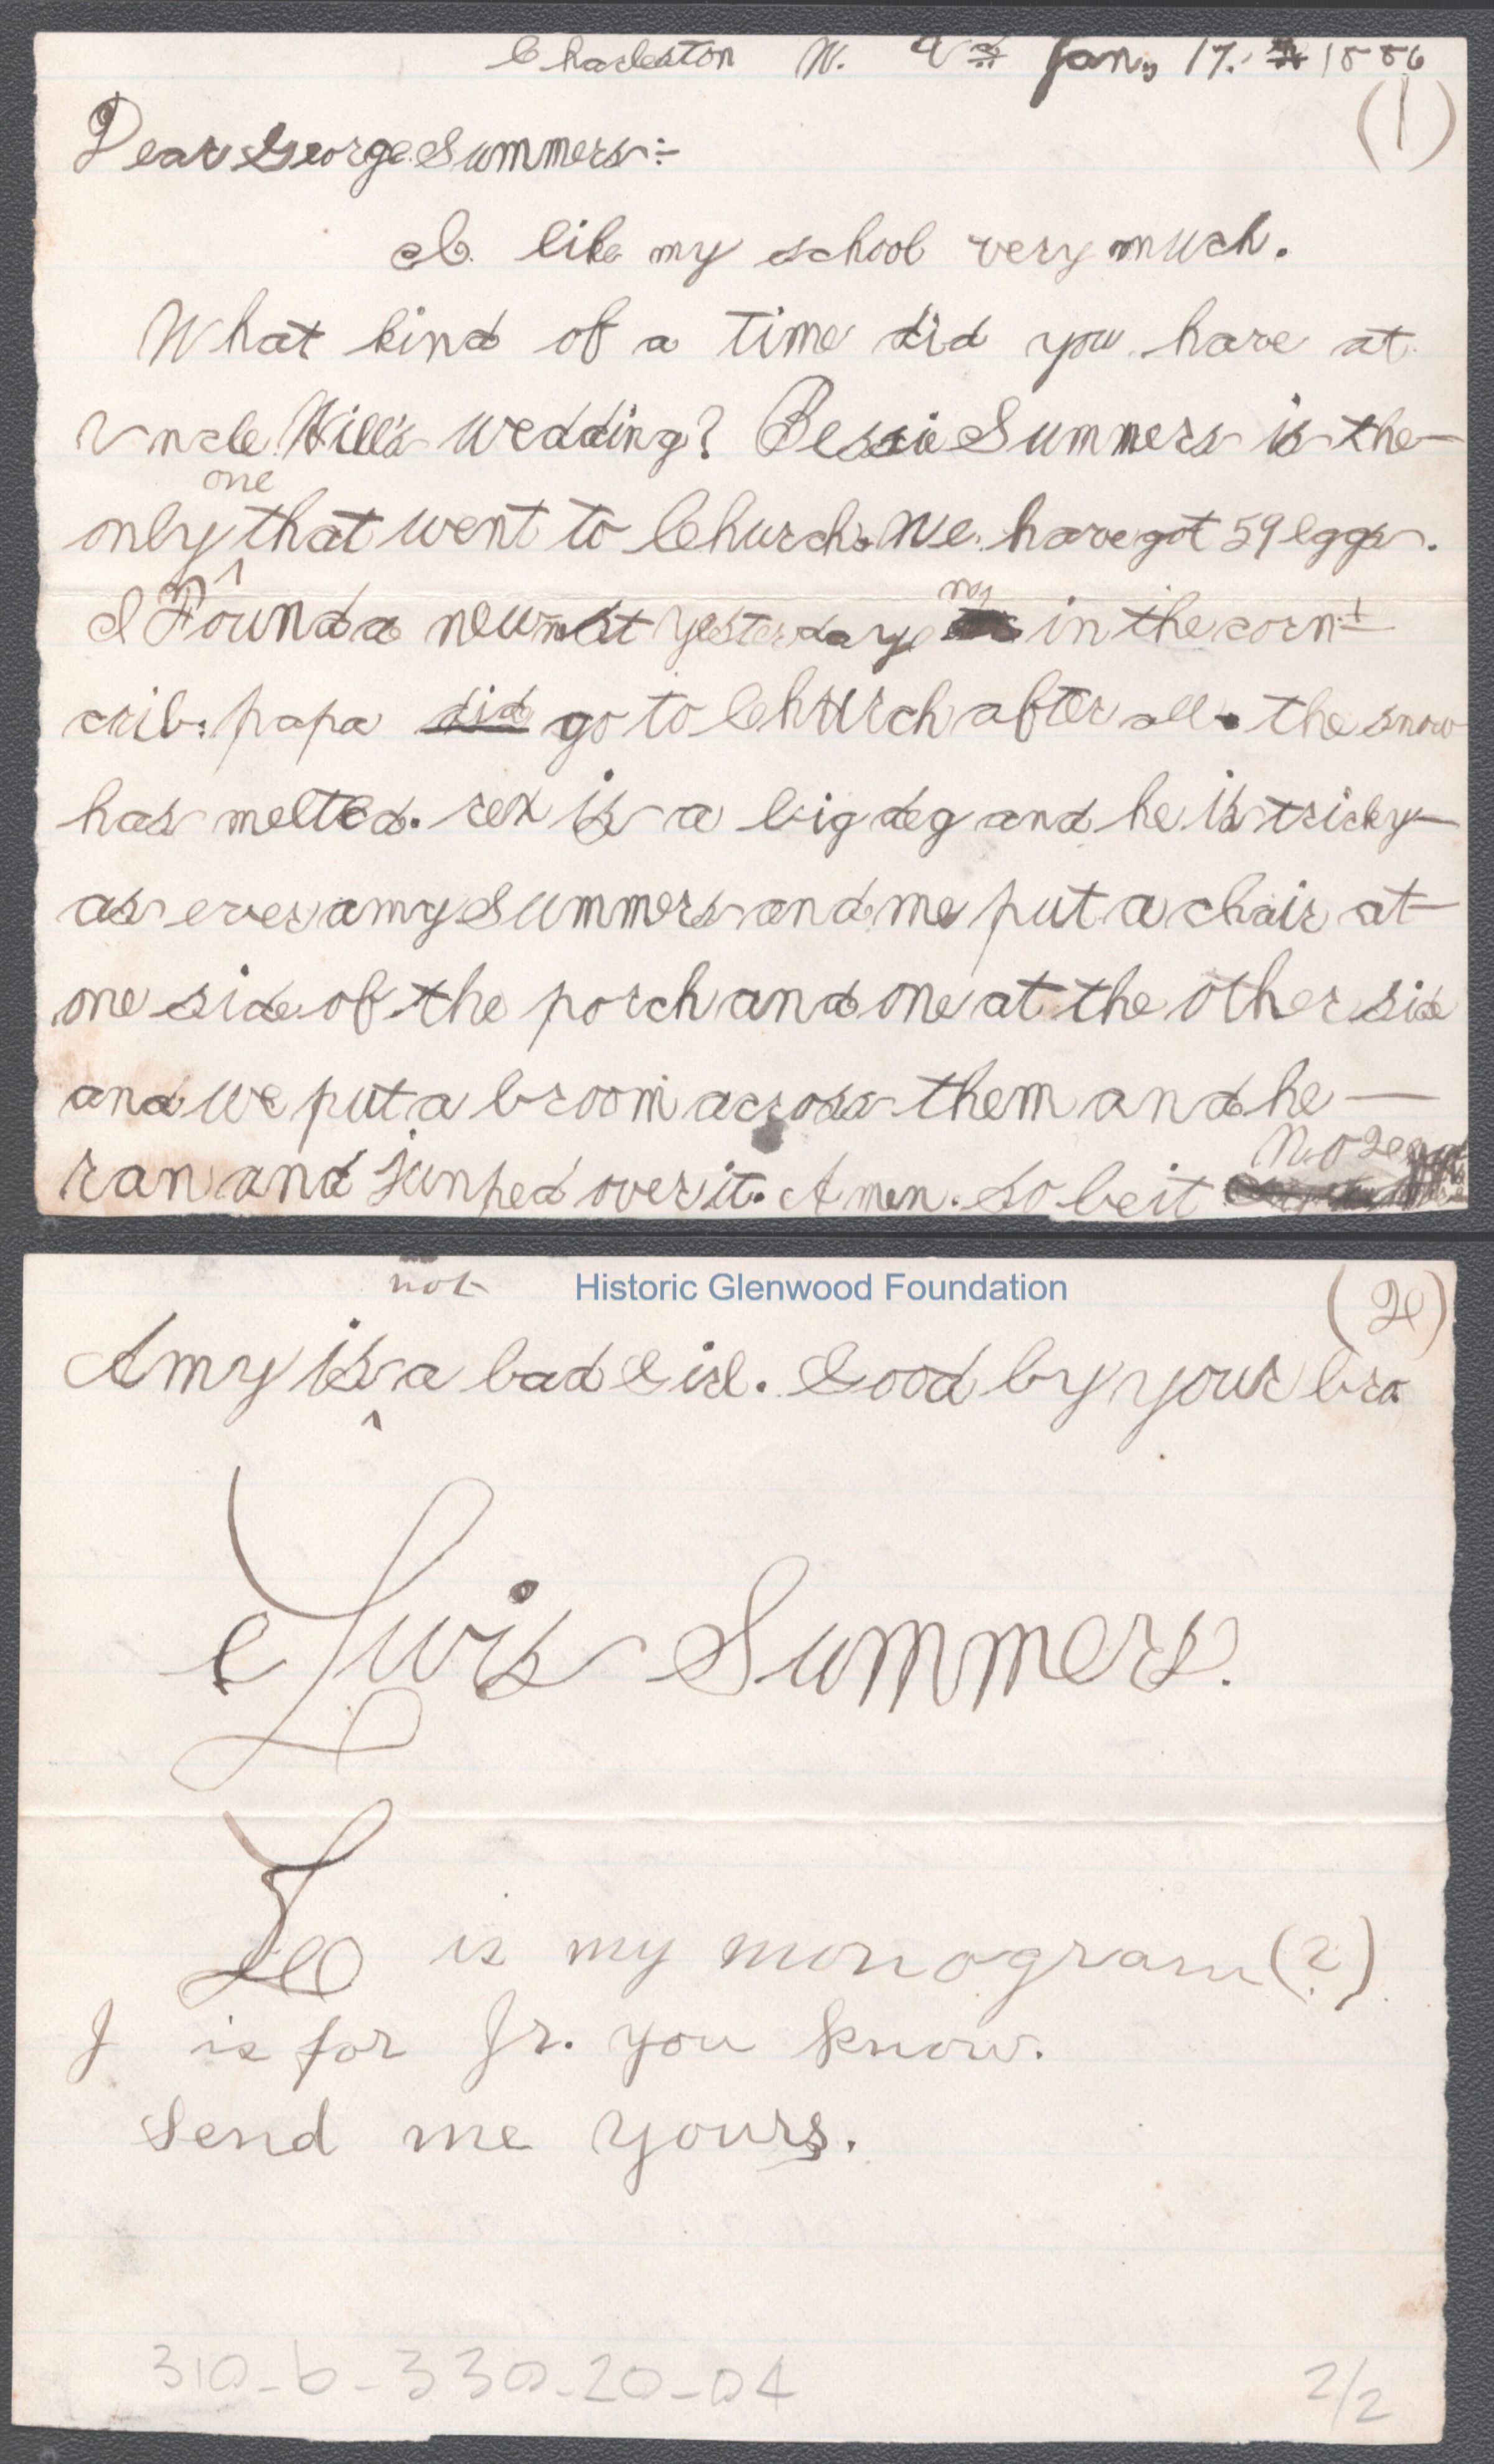 Charleston W. Va Jan, 17. 1886
(1)
Dear George Summers:-
I. like my school very much.
What kind of a time did you have at
Uncle Will's wedding? Bessie Summers is the
one
only ^ that went to Church. We have got 59 eggs.
I Found a new nest yesterday in the corn-
crib. papa did go to Church after all. the snow
has melted. rex is a big dog and he is tricky
as ever amy Summers and me put a chair at
one side of the porch and one at the other side
and we put a broom across them and he —
ran and jumped over it. Amen. So be it
not
Historic Glenwood Foundation
(2)
Amy is ^ a bad Girl. Good by your bro
Lewis Summers.
is my monogram (?)
J is for Jr. you know.
Send me yours.
310-b-330-20-04
2/2